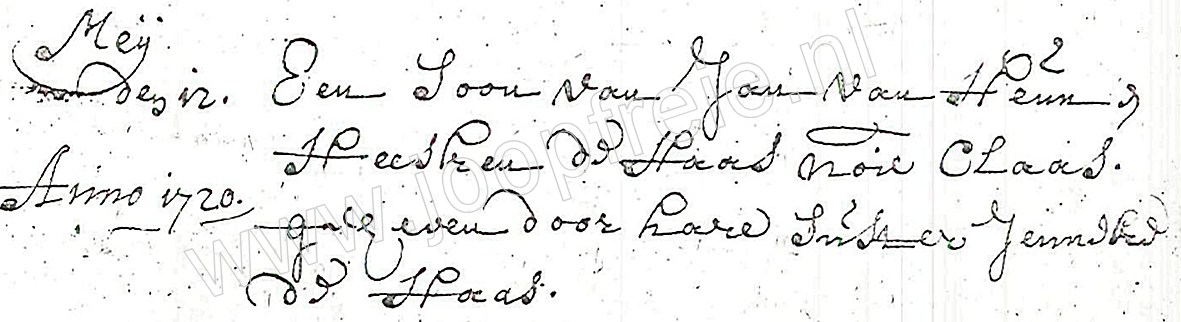 Meij
den 12. Een Soon van Jan van Heun
Heesken de Haas noie Claas.
Anno 1720.
geheven door hare Suster Jenneke
de Haas.
www.joopfreje.nl